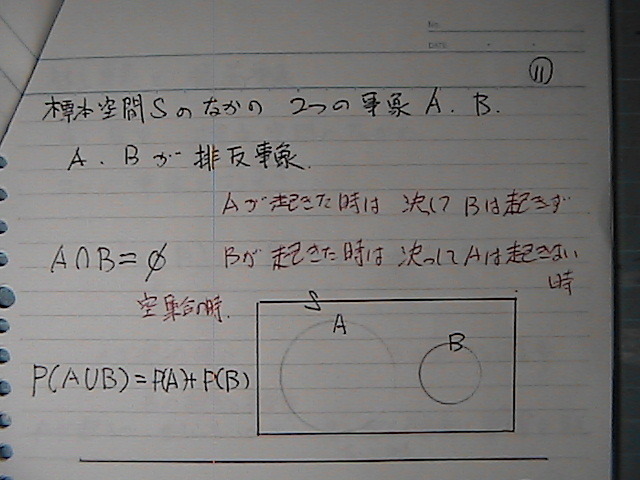 No.
DATE
⑪
標本空間Sのなかの 2つの事象 A. B.
A. Bが 排反事象.
Aが起きた時は 決して Bは起きず
A∩B=∅
Bが起きた時は 決っして Aは起きない
時
空集合の時.
S
A
B
P(A∪B)=P(A)+P(B)